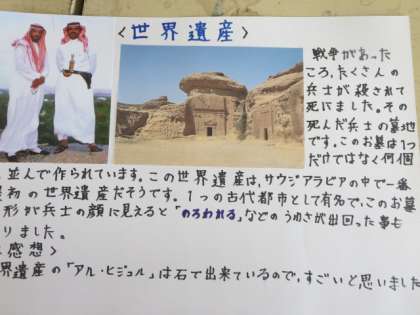 <世界遺産>
戦争があった
ころ、たくさんの
兵士が殺されて
死にました。その
死んだ兵士の墓地
です。このお墓は1つ
だけではなく何個
並んで作られています。この世界遺産は、サウジアラビアの中で一番
初の世界遺産だそうです。1つの古代都市として有名で、このお墓
形が兵士の顔に見えると「のろわれる」などのうわさが出回った事も
りました。
感想>
界遺産の「アル・ヒジュル」は石で出来ているので、すごいと思いました